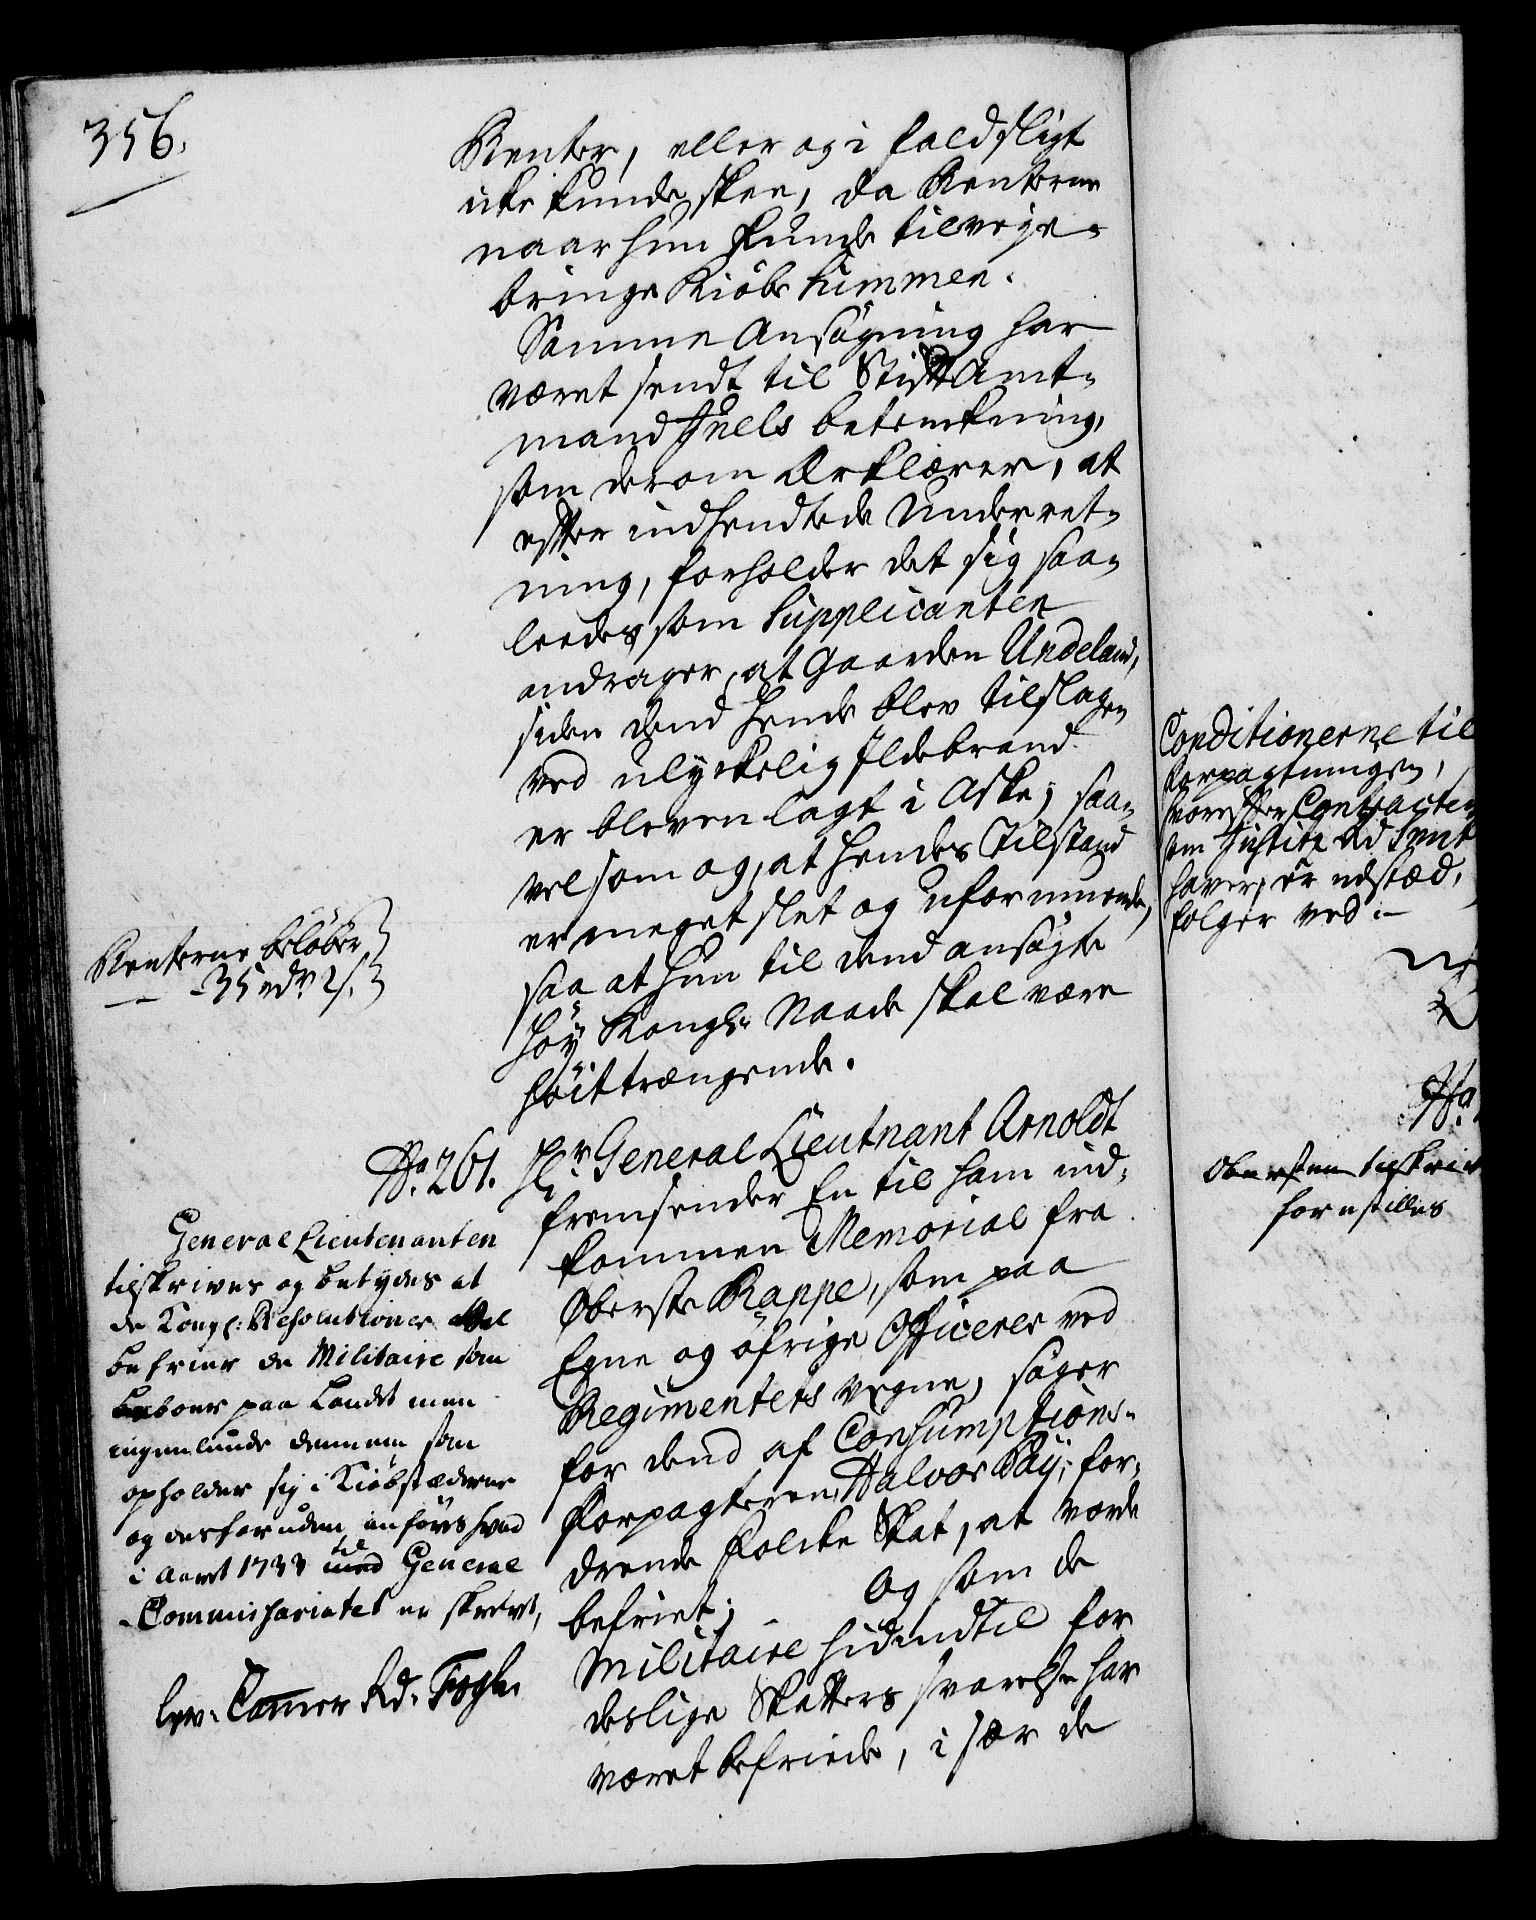 356.
Renter, eller og i fald sligt
icke kunde skee, da Renterne
naar hun kunde tilveye-
bringe Kiöbs Summen.
Samme Ansögning har
været sendt til Stift Amt-
mand Juels betenkning,
som derom Erklærer, at
efter indhendtede Underret-
ning, forholder det sig saa-
leedes som Supplicanten
andrager, at Gaarden Undeland,
siden dend hende blev tilslagen
ved ulyckelig Ildebrand
er bleven lagt i Aske; saa-
vel som og, at hendes Tilstand
er meget slet og uformuende,
saa at hun til dend ansögte
höy Kongl. Naade skal være
höittrængende.
Renterne belöber
- - 35 rdr 2 s.
No. 261. Hr General Lieutnant Arnoldt
fremsender En til ham ind-
kommen Memorial fra
Oberste Rappe, som paa
Egne og öfrige Officerer ved
Regimentets vegne, söger
for dend af Consumptions-
Forpagteren, Halvor Bay, for-
drende Folcke Skat, at vorde
befriet; Og som de
Militaire hidindtil for
deslige Skatters svarelse har
været befriede, i sær de
General Lieutenanten
tilskrives og betydes at
de Kongl: Resolutioner vel
befrier de Militaire som
beboer paa Landet men
ingenlunde dennem som
opholder sig i Kiöbstæderne
og desforuden anföris hvad
i Aaret 1733 til General
Commissariatet er skrevet,
lev. Cammer Rd. Fogh.
Conditionerne til
Forpagtningen,
hvorefter Contracten
som Justits Rd Smit
haver, er udstæd,
fölger ved.
No.
Obersten tilskriv
forestilles